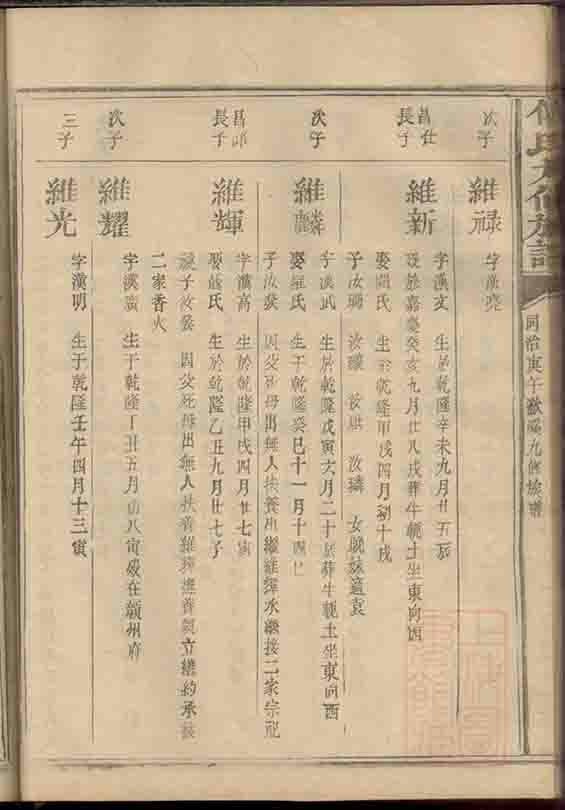 氏九修族譜
同治庚午 九修族譜
次子 維祿 字漢亮
昌 長子 維新 字漢文 生於乾隆辛未九月廿五辰
歿於嘉慶癸亥九月廿八戌葬牛軛土坐東向酉
娶 氏 生 乾隆甲戌四月初十戌
子汝 汝 汝 汝璘 女 妹適袁
次子 維麟 字漢武 生於乾隆戊寅六月二十 葬牛軛土坐東向酉
娶羅氏 生于乾隆癸巳十一月十四
子汝發 因父死母出無人扶養出繼維輝承繼接二家宗祀
昌 長子 維輝 字漢高 生於乾隆甲戌四月廿七寅
娶 氏 生於乾隆乙丑九月廿七子
子汝發 因父死母出無人扶養維輝撫養 立繼約承接
二家香火
次子 維耀 字漢廣 生于乾隆丁丑五月 八寅歿在 州府
三子 維光 字漢明 生于乾隆壬午四月十三寅